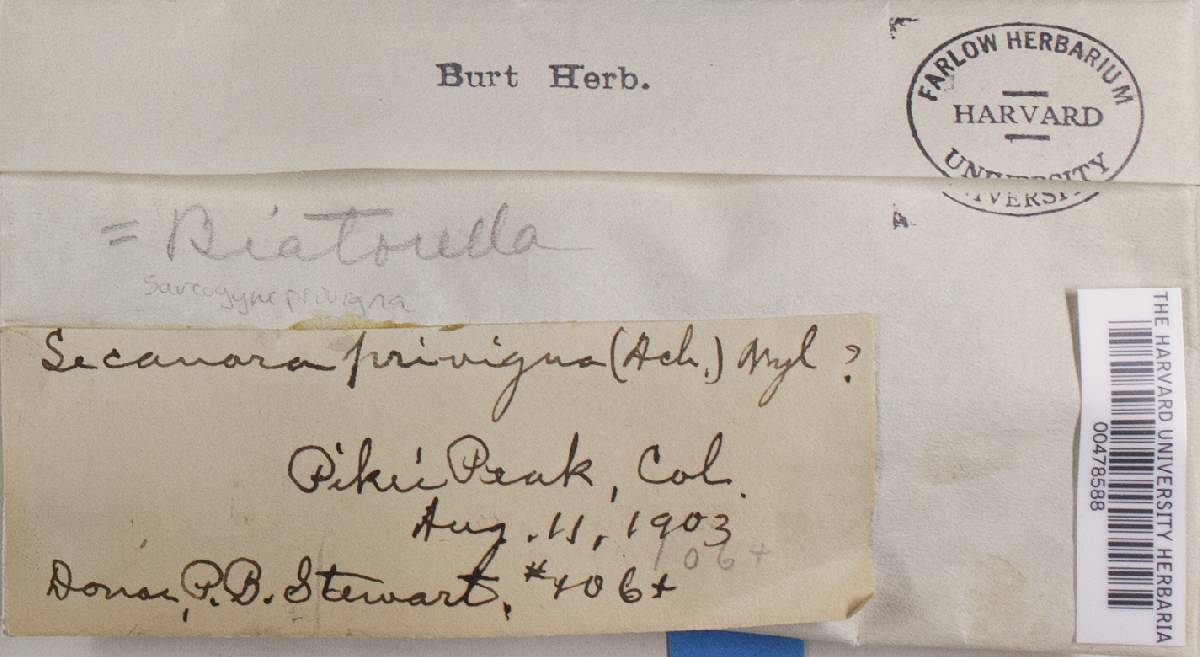 Burt Herb.
FARLOW HERBARIUM
HARVARD
UNIVERSITY
= Biatorella
Sarcogyne privigna
Lecanora privigna (Ach.) Nyl ?
Pikes Peak, Col.
Aug. 11, 1903
Donor, P. B. Stewart,
THE HARVARD UNIVERSITY HERBARIA
00478588